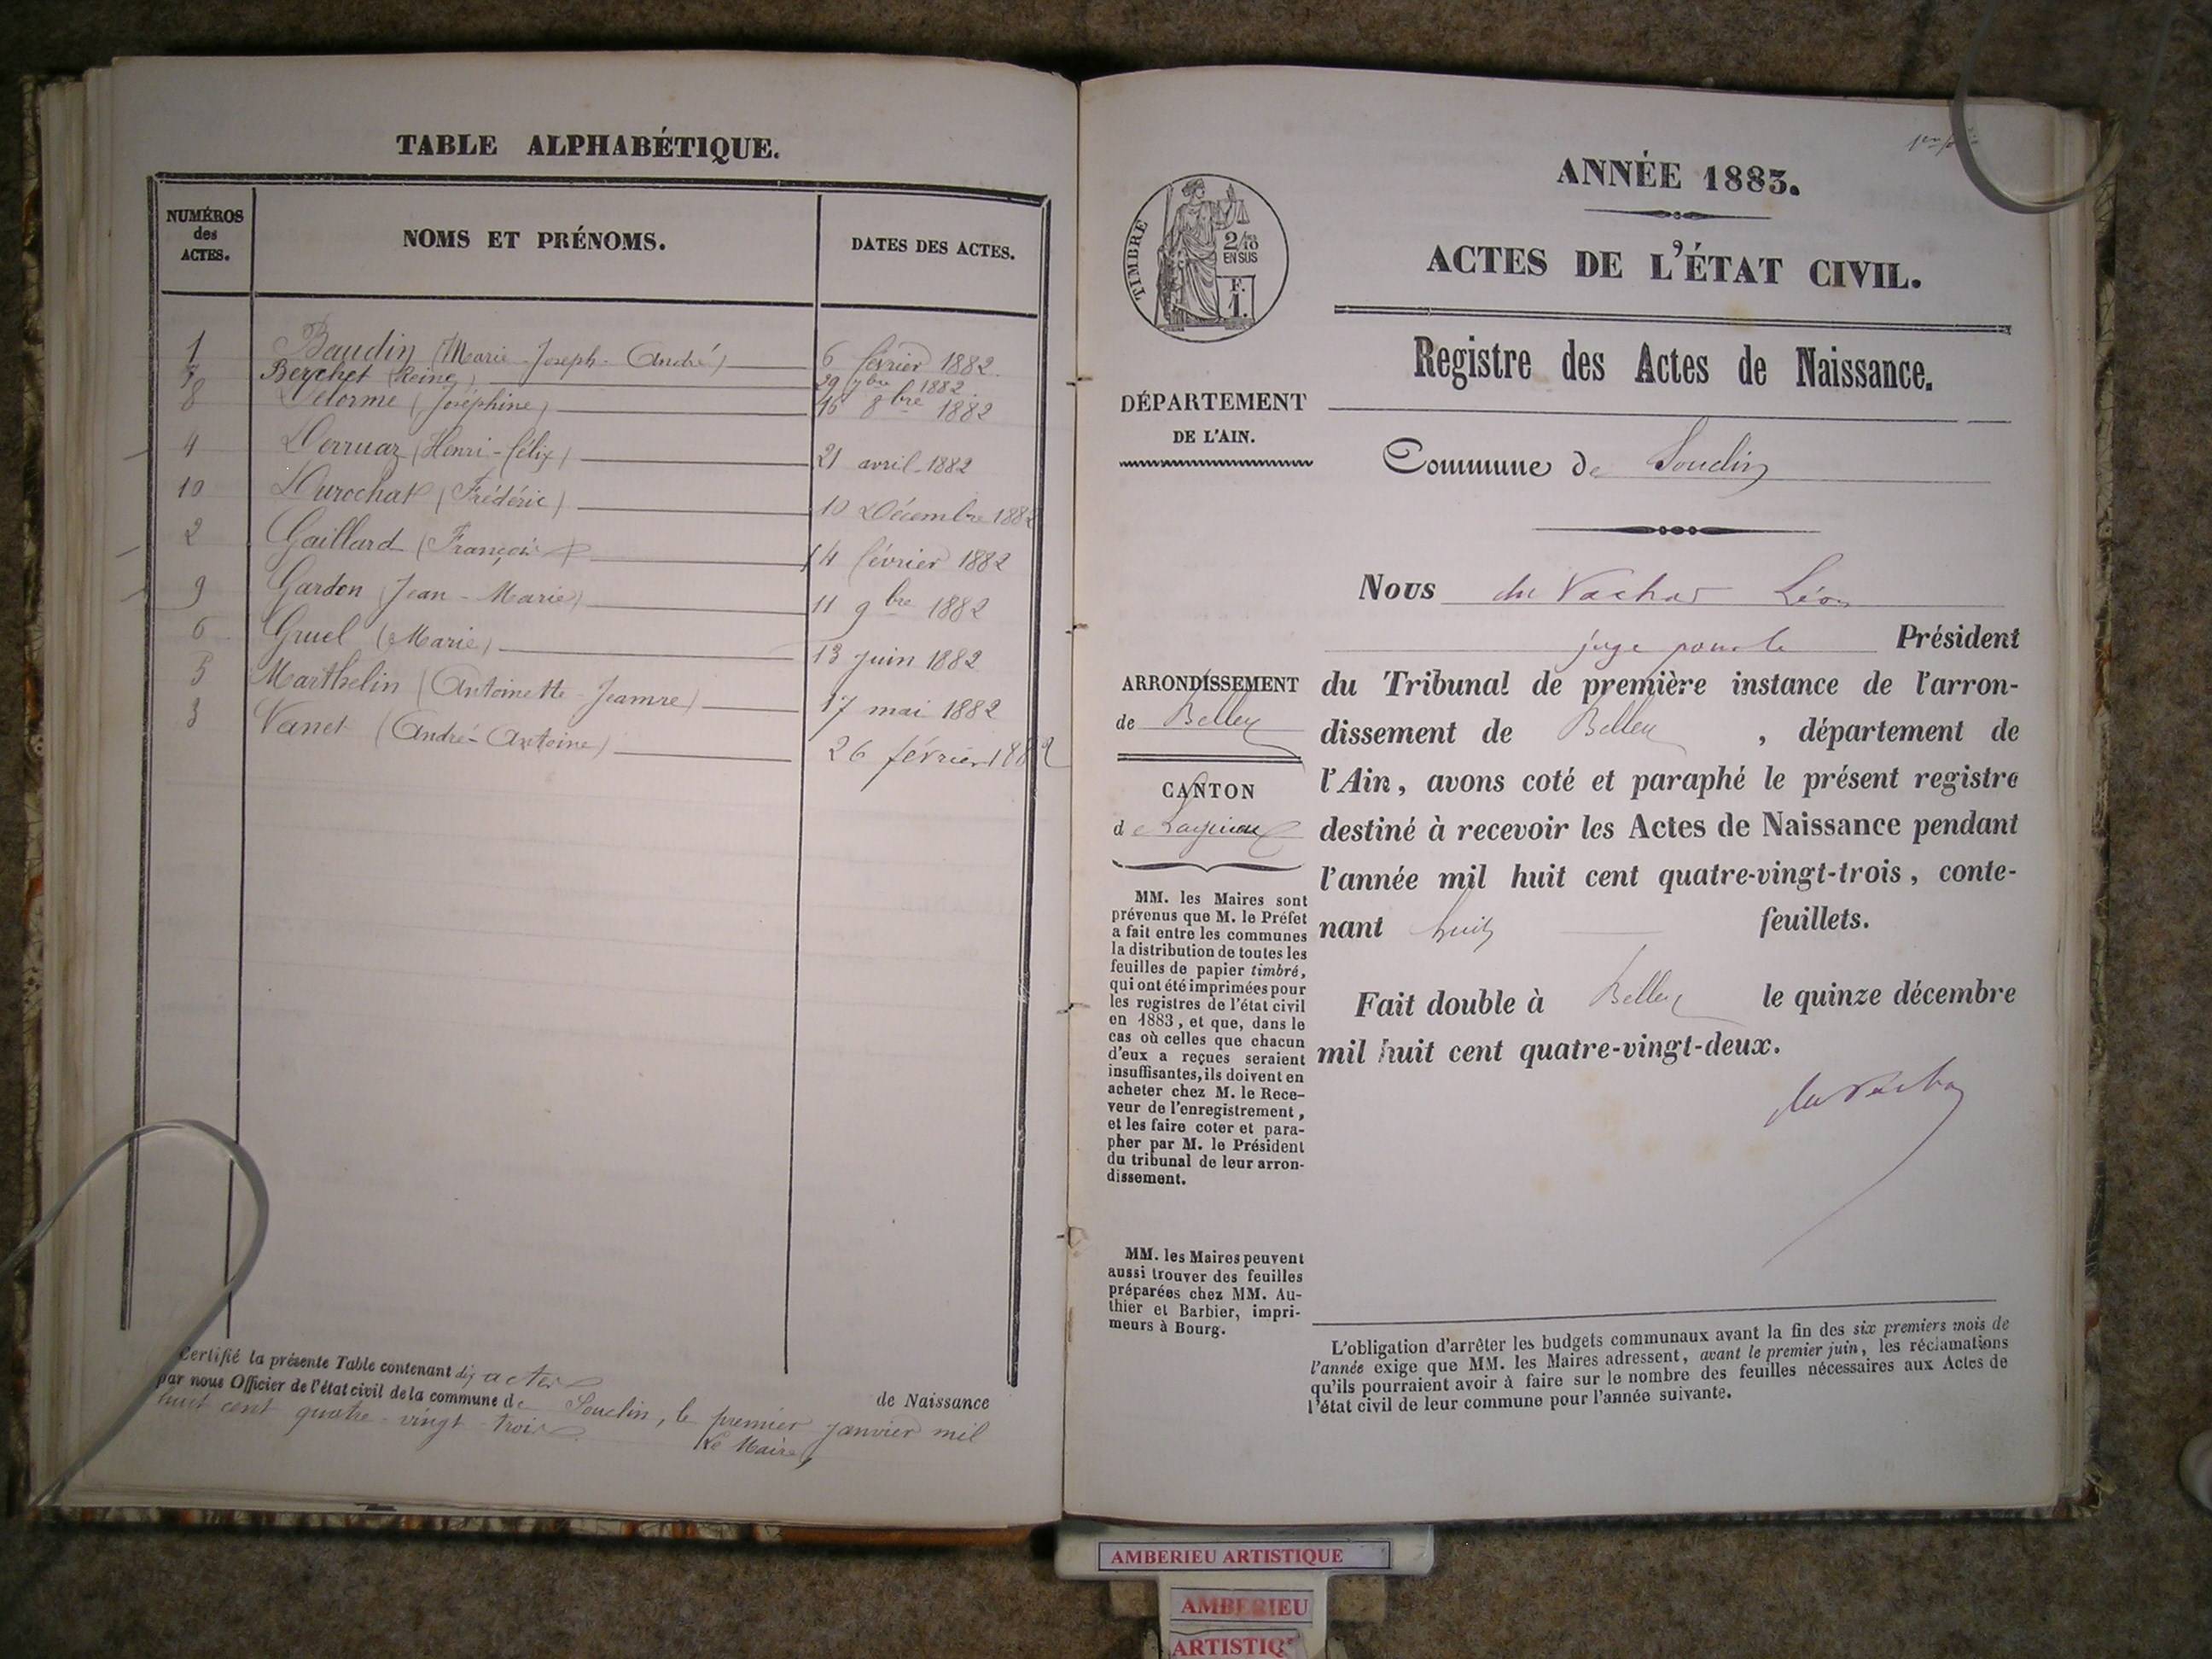 TABLE ALPHABÉTIQUE.
NUMÉROS
des
ACTES.
NOMS ET PRÉNOMS.
DATES DES ACTES.
1 Baudin (Marie-Joseph-André) 6 février 1882
7 Berchet (Reine) 29 7bre 1882
8 Delorme (Joséphine) 16 8bre 1882
4 Derruaz (Henri-félix) 21 avril 1882
10 Durochat (Frédéric) 10 Décembre 1882
2 Gaillard (François) 14 février 1882
9 Gardon (Jean-Marie) 11 9bre 1882
6 Gruel (Marie) 13 juin 1882
5 Marthelin (Antoinette-Jeanne) 17 mai 1882
3 Vanet (André-Antoine) 26 février 1882
Certifié la présente Table contenant dix actes
de Naissance
par nous Officier de l'état civil de la commune de Souclin, le premier janvier mil
huit cent quatre-vingt-trois.
Le Maire,
ANNÉE 1883.
ACTES DE L'ÉTAT CIVIL.
TIMBRE
2/10
EN SUS
F.
1.
Registre des Actes de Naissance.
DÉPARTEMENT
DE L'AIN.
Commune de Souclin
Nous du Vachat Léon
juge pour le Président
du Tribunal de première instance de l'arron-
dissement de Belley , département de
l'Ain, avons coté et paraphé le présent registre
destiné à recevoir les Actes de Naissance pendant
l'année mil huit cent quatre-vingt-trois, conte-
nant huit feuillets.
Fait double à Belley le quinze décembre
mil huit cent quatre-vingt-deux.
du Vachat
ARRONDISSEMENT
de Belley
CANTON
de Lagnieu
MM. les Maires sont
prévenus que M. le Préfet
a fait entre les communes
la distribution de toutes les
feuilles de papier timbré,
qui ont été imprimées pour
les registres de l'état civil
en 1883, et que, dans le
cas où celles que chacun
d'eux a reçues seraient
insuffisantes, ils doivent en
acheter chez M. le Rece-
veur de l'enregistrement,
et les faire coter et para-
pher par M. le Président
du tribunal de leur arron-
dissement.
MM. les Maires peuvent
aussi trouver des feuilles
préparées chez MM. Au-
thier et Barbier, impri-
meurs à Bourg.
L'obligation d'arrêter les budgets communaux avant la fin des six premiers mois de
l'année exige que MM. les Maires adressent, avant le premier juin, les réclamations
qu'ils pourraient avoir à faire sur le nombre des feuilles nécessaires aux Actes de
l'état civil de leur commune pour l'année suivante.
AMBERIEU ARTISTIQUE
AMBERIEU
ARTISTIQ